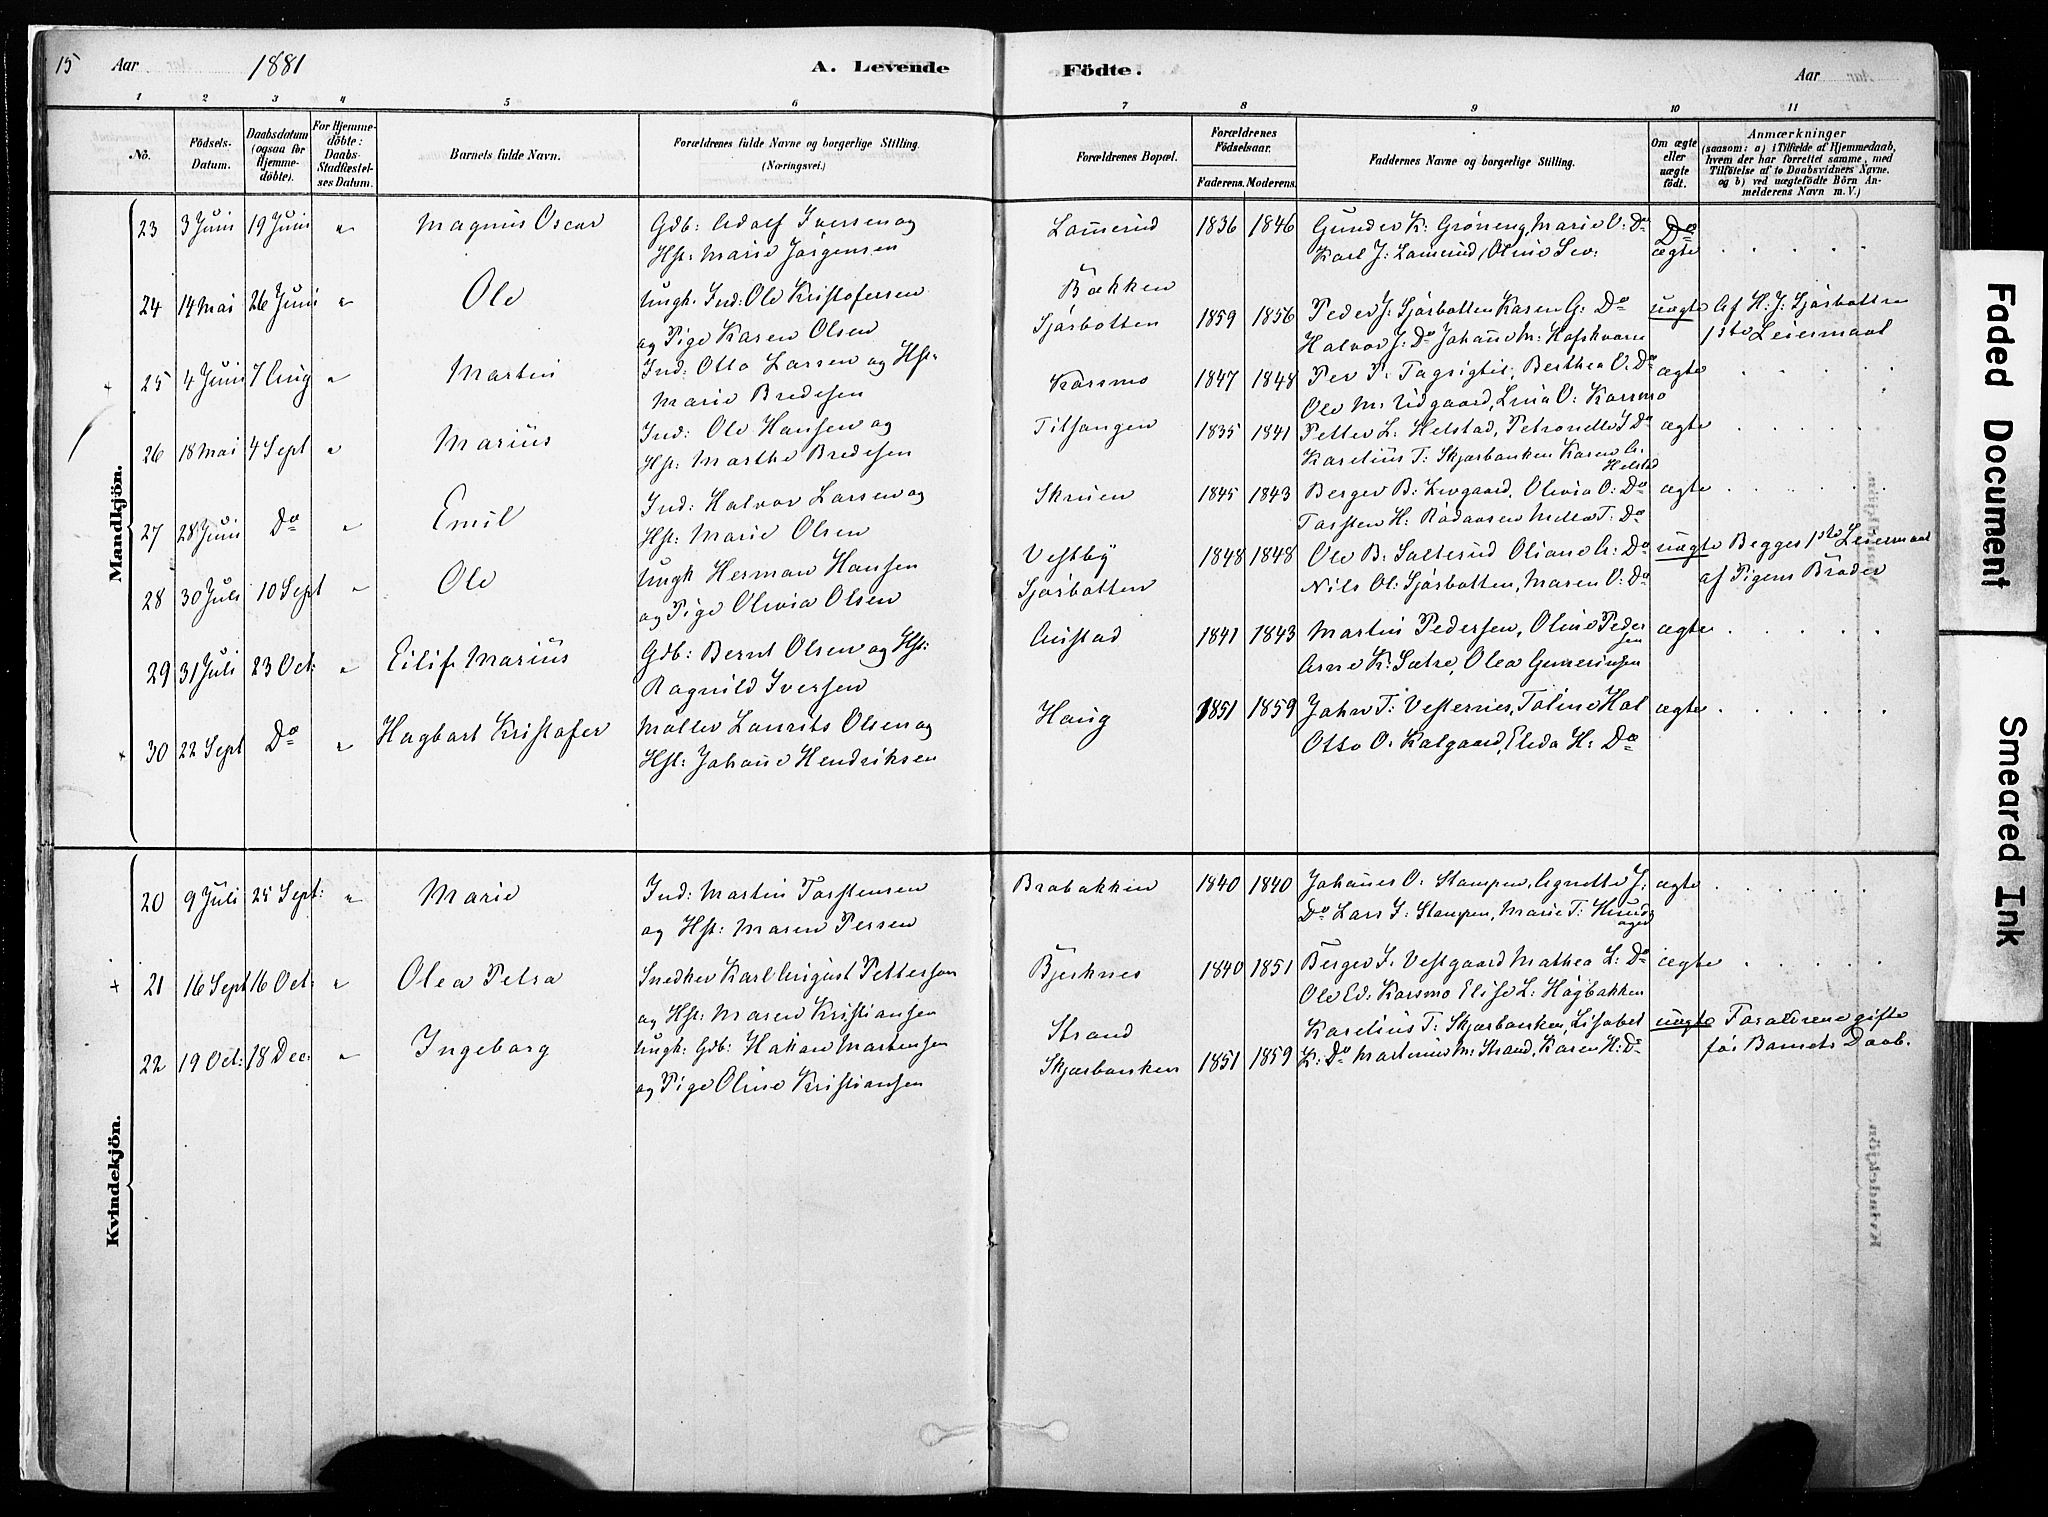 15 Aar 1881 A. Levende Födte. Aar
1 2 3 4 5 6 7 8 9 10 11
No. Födsels-Datum. Daabsdatum (ogsaa for Hjemme-döbte). For Hjemme-döbte: Daabs-Stadfæstel-ses Datum. Barnets fulde Navn. Forældrenes fulde Navne og borgerlige Stilling. (Næringsvei.) Forældrenes Bopæl. Forældrenes Födselsaar. Faderens. Moderens. Faddernes Navne og borgerlige Stilling. Om ægte eller uægte födt. Anmærkninger (saasom: a) i Tilfælde af Hjemmedaab, hvem der har forrettet samme, med Tilföielse af to Daabsvidners Navne. og b) ved uægtefödte Börn Anmelderens Navn m. V.)
Mandkjön.
23 3 Juni 19 Juni " Magnus Oscar Gdb: Adolf Iversen og Lamerud 1836 1846 Gunder K. Gröneng, Marie O: Do Do
Hst: Marie Jörgensen Karl J: Lamerud, Oline Sev: ægte
24 14 Mai 26 Juni " Ole Ungk. Ind: Ole Kristofersen Bakken
og Pige Karen Olsen Sjörbotten 1859 1856 Peder J: Sjörbotten Karen G: Do uægte Af H: J: Sjörbotten
Halvor J: Do Johanne M: Hofskvarn 1ste Leiermaal
25 4 Juni 7 Aug " Martin Ind: Otto Larsen og Hst: Korsmo 1847 1848 Per P: Tagrigtil, Berthea O: Do ægte
Marie Bredesen Ole M: Udgaard, Lina O: Korsmo
26 18 Mai 4 Sept " Marius Ind: Ole Hansen og Tilsangen 1835 1841 Petter L: Helstad, Petronelle I Do ægte
Hst: Marthe Bredesen Karelius T: Skjærbanken Karen A: Helstad
27 28 Juni Do " Emil Ind: Halvor Larsen og Skruen 1845 1843 Berger B: Livgaard, Olivia O: Do ægte
Hst: Marie Olsen Torsten H: Rödaasen Mella T: Do
28 30 Juli 10 Sept " Ole Ungk Herman Hansen Vestby 1848 1848 Ole B: Salterud Oliane A: Do uægte Begges 1ste Leiermaal
og Pige Olivia Olsen Sjörbotten Nils Ol: Sjörbotten, Maren O: Do af Pigens Broder
29 31 Juli 23 Oct: " Eilif Marius Gdb: Bernt Olsen og Hst: Austad 1841 1843 Martin Pedersen, Oline Pedersen ægte
Ragnild Iversen Arne K: Sætre, Olea Gunneringsen
30 22 Sept Do " Hagbart Kristofer Möller Laurits Olsen og Haug 1851 1859 Johan T: Vesternes, Toline Hol ægte
Hst: Johanne Hendriksen Otto O: Kalgaard, Eleda H: Do
Kvindekjön.
20 9 Juli 25 Sept: " Marie Ind: Martin Torstensen Brobakken 1840 1840 Johannes O: Stampen, Agnette J: ægte
og Hst: Maren Persen Do Lars J: Stampen, Marie T: Hundager
21 16 Sept 16 Oct: " Olea Petra Snedker Karl August Petterson Bjerknes 1840 1851 Berger I: Vestgaard Mathea L: Do ægte
og Hst: Maren Kristiansen Ole Ed: Korsmo Elise L: Hagbakken
22 19 Oct: 18 Dec: " Ingeborg Ungk: Gdb: Hakon Martensen Strand Karelius T: Skjærbanken, Lisabet uægte Forældrene gifte
og Pige Oline Kristiansen Skjærbanken 1851 1859 K: Do Martinius M: Strand, Karen H: Do för Barnets Daab.
Faded Document
Smeared Ink